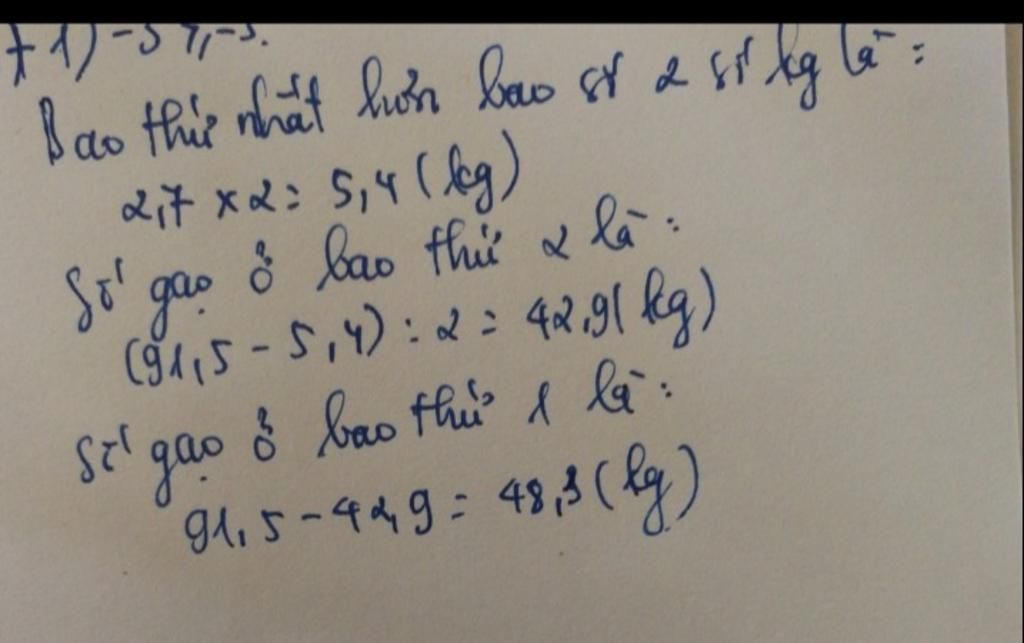 +1)-57,-5.
Bao thứ nhất hơn bao số 2 số kg là:
2,7 x 2 = 5,4 (kg)
Số gạo ở bao thứ 2 là:
(91,5 - 5,4) : 2 = 42,9 (kg)
Số gạo ở bao thứ 1 là:
91,5 - 42,9 = 48,3 (kg)